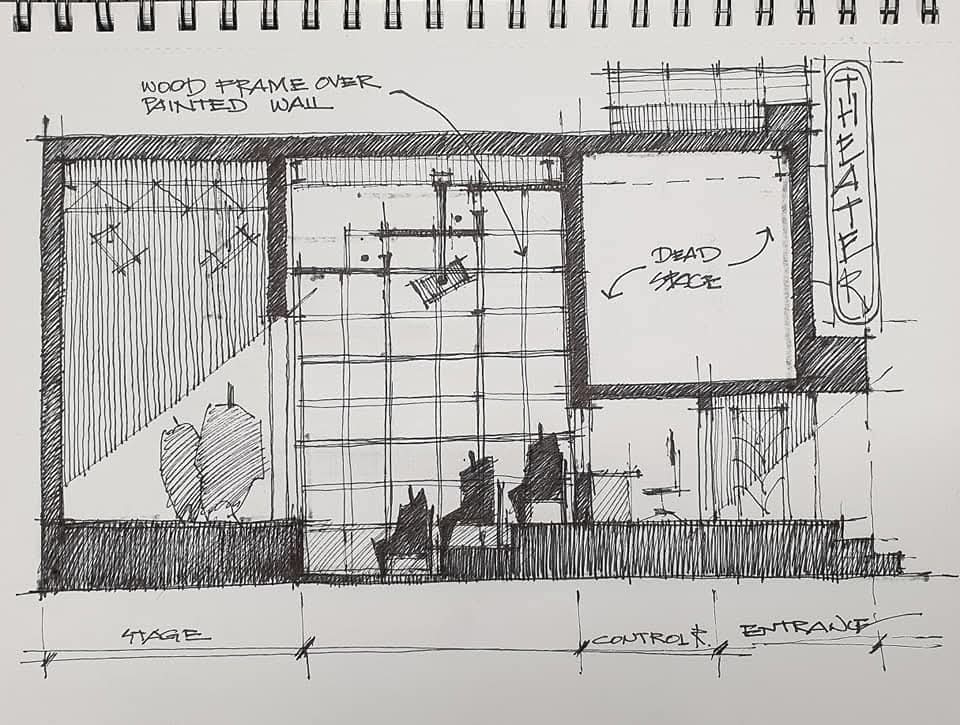 WOOD FRAME OVER
PAINTED WALL
THEATER
DEAD
SPACE
STAGE
CONTROL R.
ENTRANCE